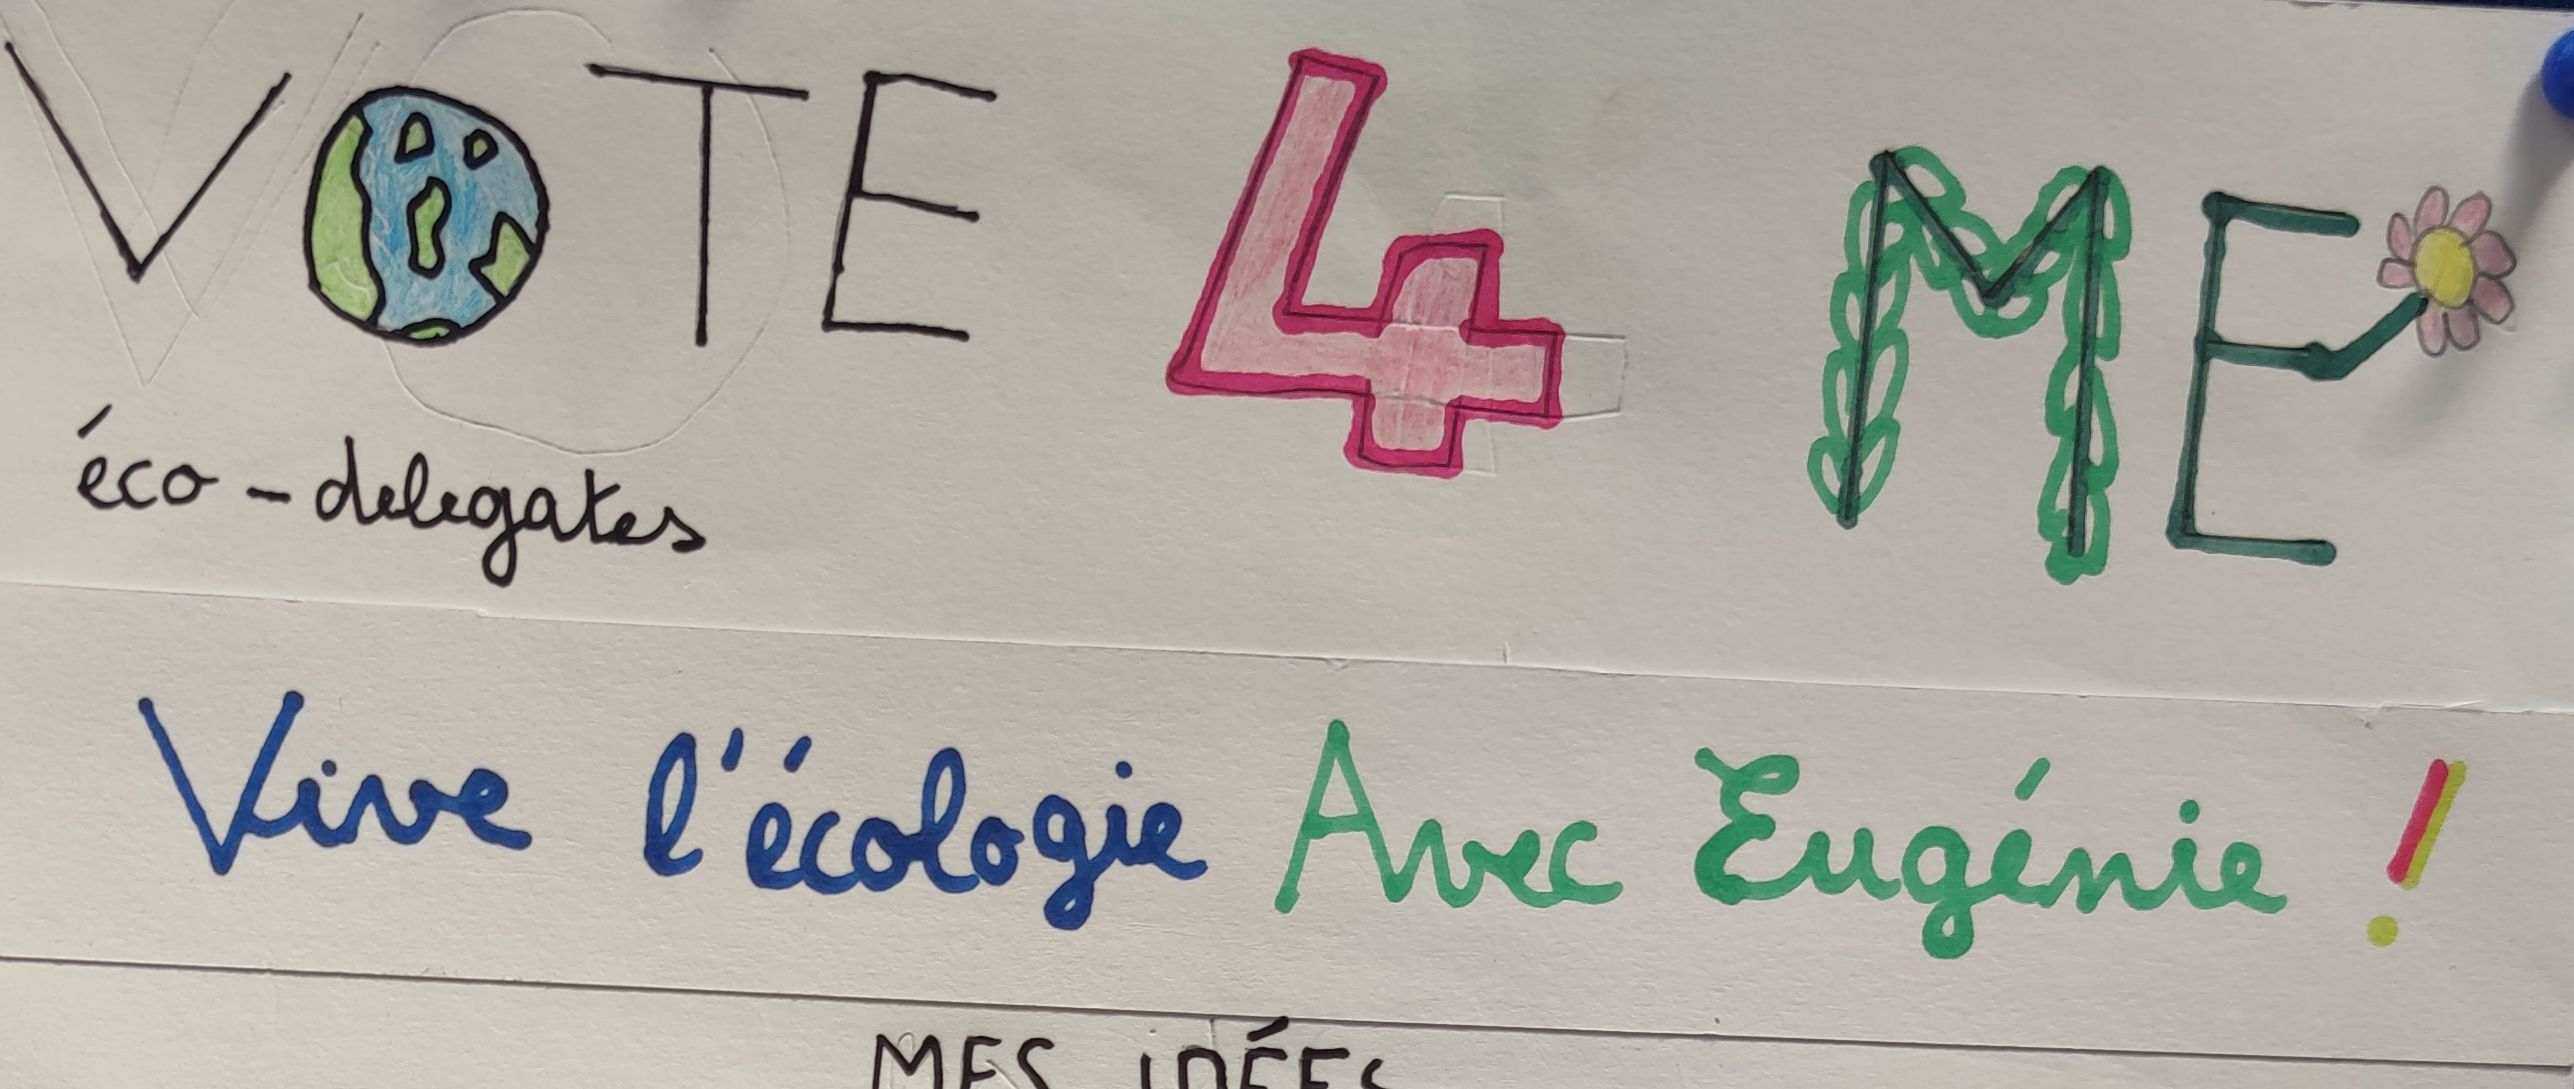 VOTE 4 ME
éco-delegates
Vive l'écologie Avec Eugénie !
MES IDÉES